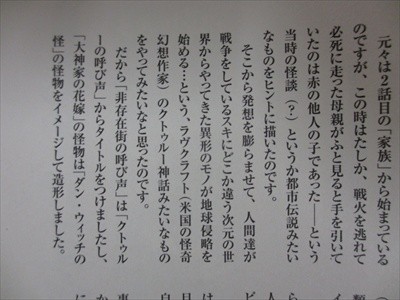 元々は2話目の「家族」から始まっている
のですが、この時はたしか、戦火を逃れて
必死に走った母親がふと見ると手を引いて
いたのは赤の他人の子であった――という
当時の怪談(?)というか都市伝説みたい
なものをヒントに描いたのです。
そこから発想を膨らませて、人間達が
戦争をしているスキにどこか違う次元の世
界からやってきた異形のモノが地球侵略を
始める…という、ラヴクラフト(米国の怪奇
幻想作家)のクトゥルー神話みたいなもの
をやってみたいなと思ったのです。
だから「非存在街の呼び声」は「クトゥル
ーの呼び声」からタイトルをつけましたし、
「大神家の花嫁」の怪物は「ダン・ウィッチの
怪」の怪物をイメージして造形しました。